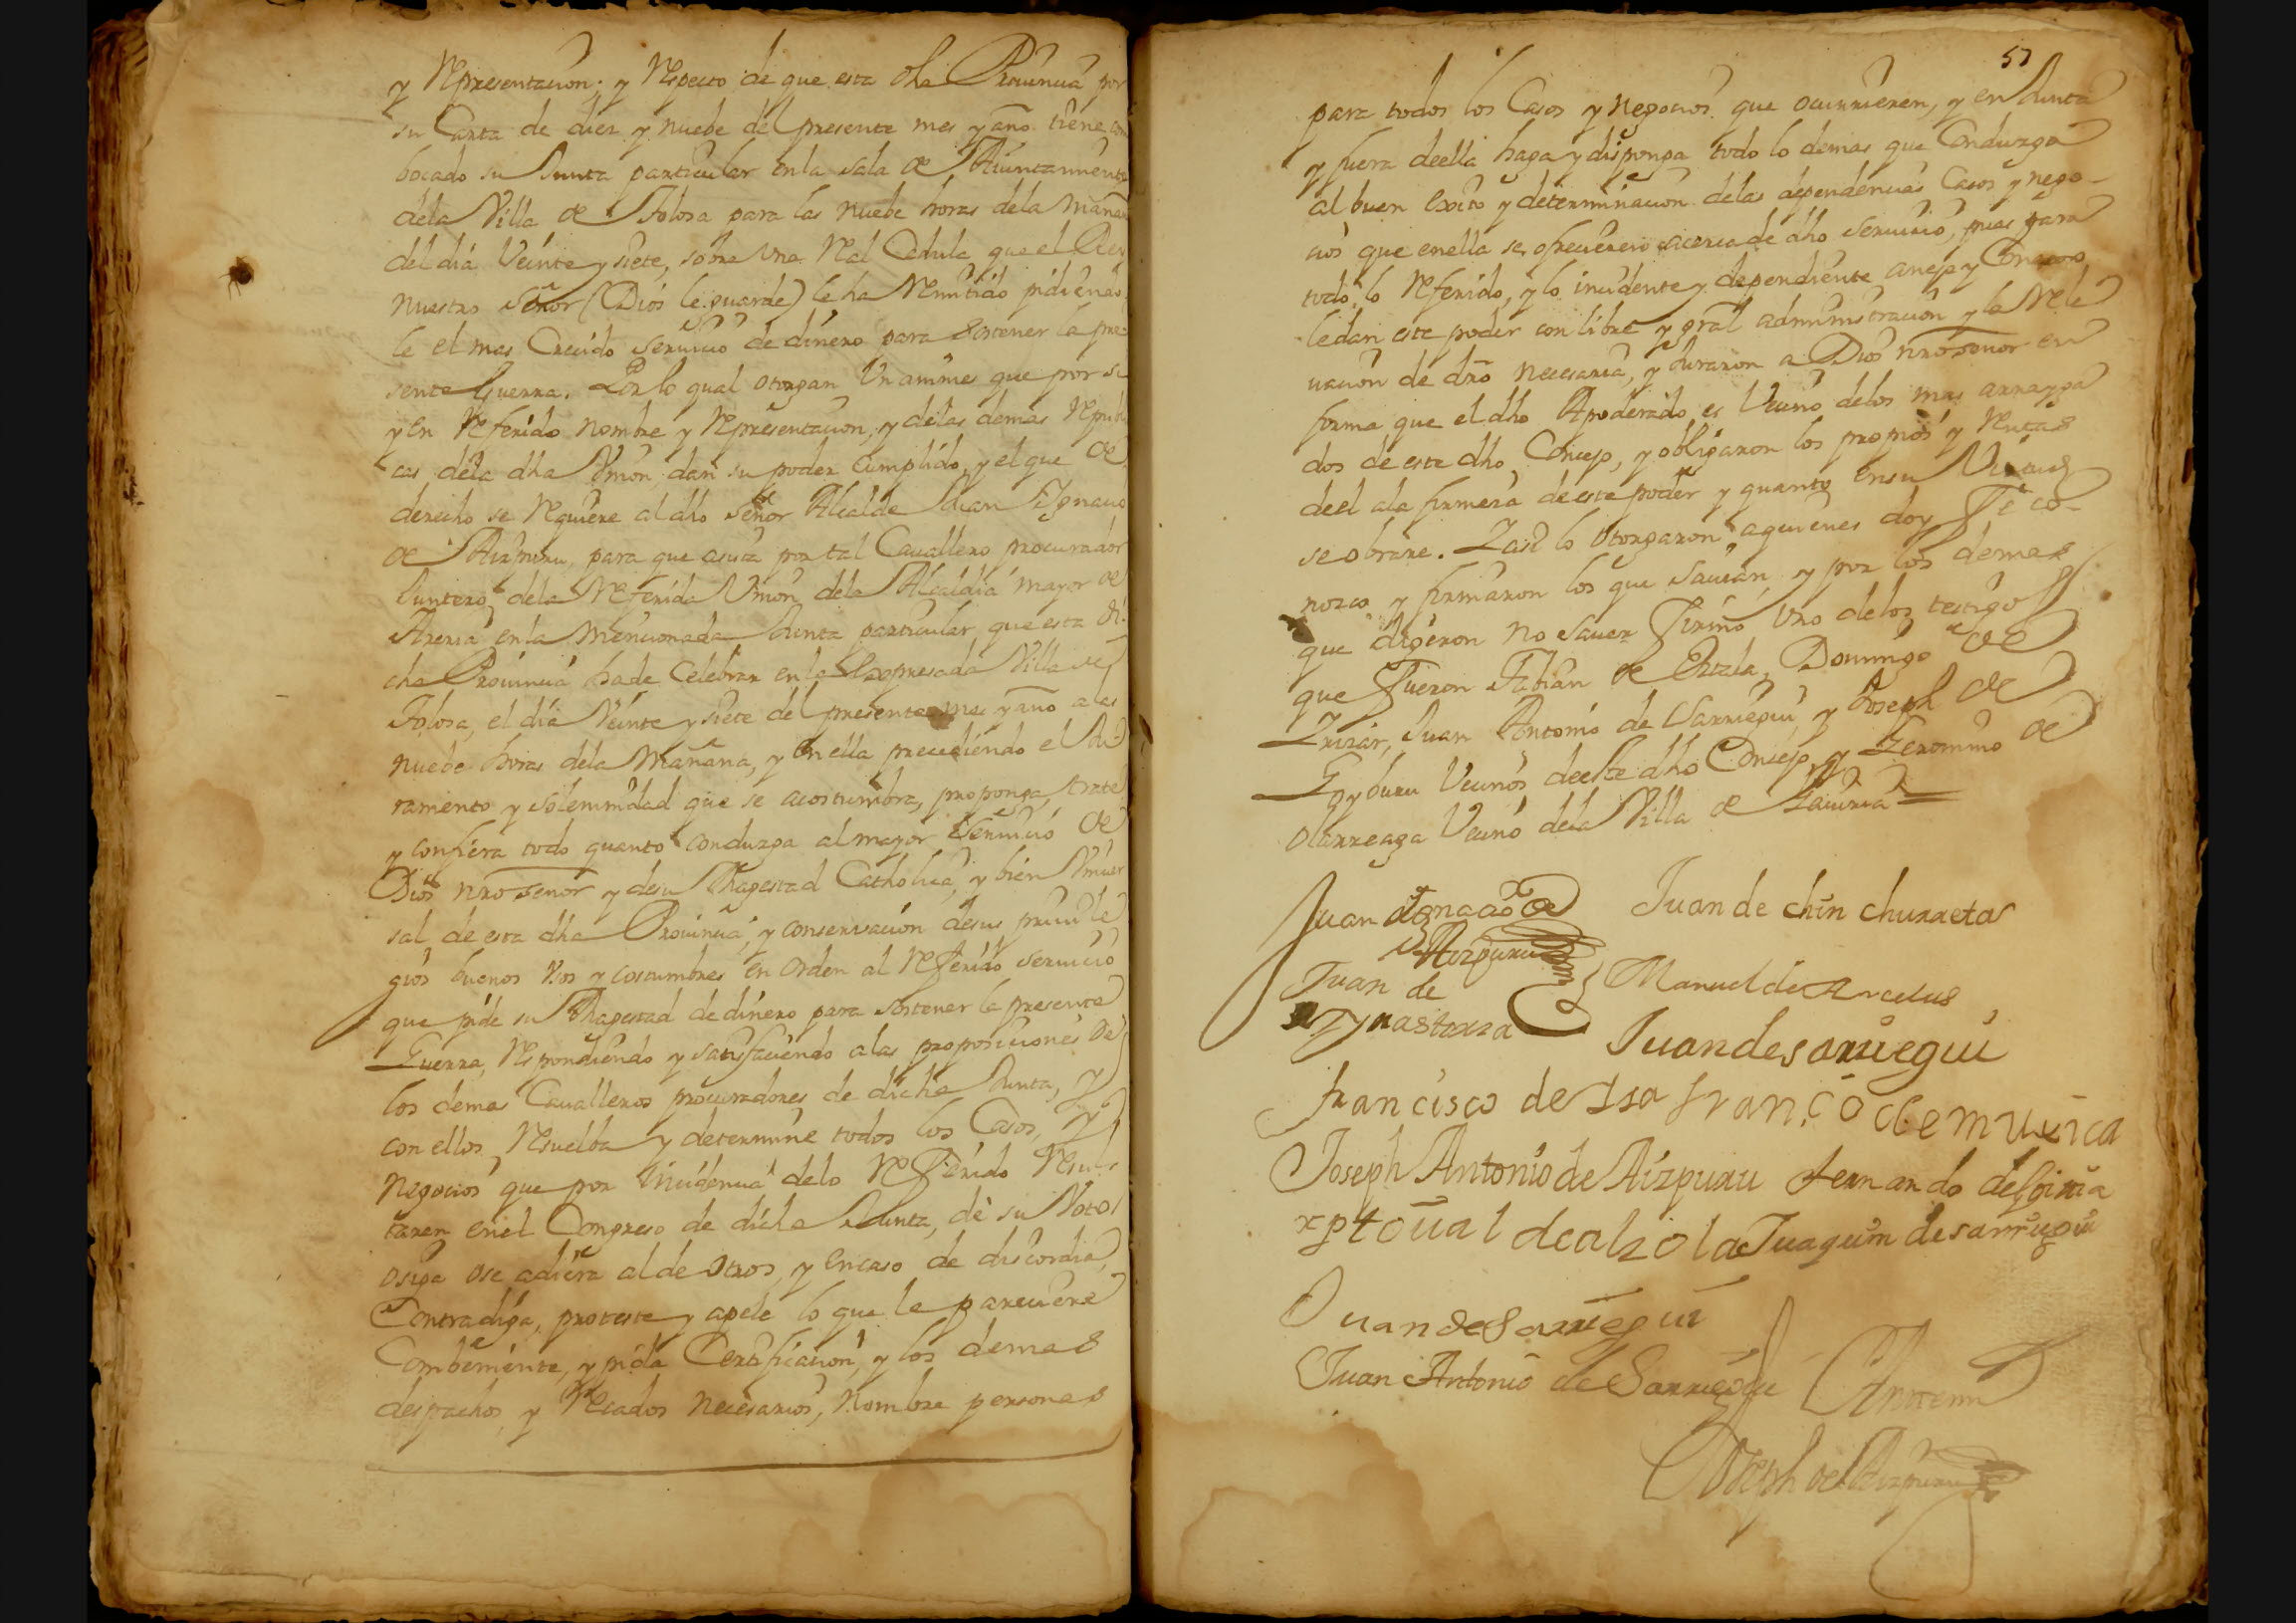 y Representacion; y Respecto de que esta dha Provincia por
su Carta de diez y nuebe del presente mes y año tiene com
bocado su Junta particular en la sala de Aiuntamiento
dela Villa de Tolosa para las nuebe horas dela mañana
del dia Veinte y siete, sobre una Rl Cedula que el Rey
nuestro Señor (Dios le guarde) le ha Remitido pidiendo
le el mas Crecido servicio de dinero para sostener la pre
sente Guerra. Por lo qual otorgan Unanimes que por si
y en Referido nombre y Representacion, y delas demas Republi
cas dela dha Union, dan su poder Cumplido, y el que de
derecho se Requiere al dho Señor Alcalde Juan Ignacio
de Aizpuru, para que asista por tal Cavallero procurador
Juntero dela Referida Union dela Alcaldia mayor de
Areria en la mencionada Junta particular que esta di
cha Provincia ha de Celebrar en la Expresada Villa de
Tolosa, el dia Veinte y siete del presente mes y año a las
nuebe horas dela Mañana, y en ella precediendo el Ju
ramento y solemnidad que se acostumbra, proponga, trate
y confiera todo quanto conduzga al mayor servicio de
Dios nro señor y de su Magestad Catholica, y bien Univer
sal de esta dha Provincia, y conservacion de sus privile
gios buenos Usos y costumbres en orden al Referido servicio
que pide su Magestad de dinero para sostener la presente
Guerra, Respondiendo y satisfaciendo a las proposiciones de
los demas Cavalleros procuradores de dicha Junta, y
con ellos Resuelba y determine todos los Casos, y
negocios que por Incidencia delo Referido Resul
taren en el Congreso de dicha Junta, dè su Voto
o siga o se adiera al de otros, y en caso de discordia,
Contradiga, proteste y apele lo que le pareciere
Combeniente, y pida Certificacion, y los demas
despachos, y Recados necesarios, nombre personas
57
para todos los Casos y negocios que ocurrieren, y en Junta
y fuera deella haga y disponga todo lo demas que Conduzga
al buen Exito y determinacion delas dependencias Casos y nego-
cios que en ella se ofrecieren acerca de dho servicio, pues para
todo lo Referido, y lo incidente y dependiente anejo y Conexo
le dan este poder con libre y gral administracion y la Rele
vacion de dro necesaria, y Juraron a Dios nro señor en
forma que el dho Apoderado es Vecino delos mas arrayga
dos de este dho Concejo, y obligaron los propios y Rentas
deel ala firmeza de este poder y quanto en su Virtud
se obrare. Y asi lo otorgaron, a quienes doy fe co-
nozco y firmaron los que savian, y por los demas
que digeron no saver firmo uno delos testigos
que fueron Fabian de Oztala, Domingo de
Irizar, Juan Antonio de Sarriegui, y Joseph de
Egyburu Vecinos de este dho Concejo, y Geronimo de
Olarreaga Vecino dela Villa de Gaviria
Juan Ignacio de Juan de chinchurreta
Aizpuru
Juan de Manuel de Arcelus
Juan de sarriegui
francisco de Isa franco de muxica
Joseph Antonio de Aizpuru fernando de
xptoual de alzola Juaquin de sarriegui
Juan de Sarriegui
Juan Antonio de Sarriegui Ante mi
Joseph de Aizpuru